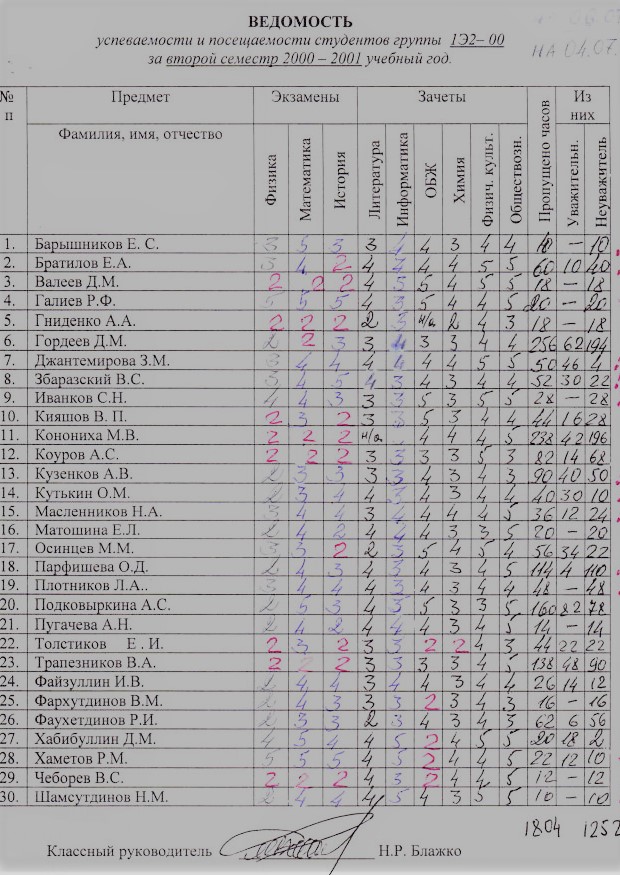 ВЕДОМОСТЬ
успеваемости и посещаемости студентов группы 1Э2– 00
за второй семестр 2000 – 2001 учебный год.
НА 04.07.
№ п Предмет Экзамены Зачеты Пропущено часов Из них
Фамилия, имя, отчество Физика Математика История Литература Информатика ОБЖ Химия Физич. культ. Обществозн. Уважительн. Неуважител
1. Барышников Е. С. 3 5 3 3 4 4 3 4 4 10 – 10
2. Братилов Е.А. 3 4 2 4 4 4 5 5 60 10 40
3. Валеев Д.М. 2 2 2 4 3 5 4 5 5 18 – 18
4. Галиев Р.Ф. 5 5 5 4 3 5 4 4 5 20 – 20
5. Гниденко А.А. 2 2 2 2 3 н/а 2 4 3 18 – 18
6. Гордеев Д.М. 2 2 3 3 4 3 3 4 4 256 62 194
7. Джантемирова З.М. 3 4 4 4 4 4 4 5 5 50 46 4
8. Збаразский В.С. 3 4 5 4 3 4 3 4 4 52 30 22
9. Иванков С.Н. 4 4 3 3 3 5 3 5 5 28 – 28
10. Кияшов В. П. 2 3 2 3 3 5 3 4 4 44 16 28
11. Конониха М.В. 2 2 2 н/а 4 4 4 5 238 42 196
12. Коуров А.С. 2 2 2 3 3 3 3 5 3 82 14 68
13. Кузенков А.В. 2 3 3 3 3 4 3 4 3 90 40 50
14. Кутькин О.М. 2 3 4 4 3 4 3 4 4 40 30 10
15. Масленников Н.А. 3 4 4 3 4 4 4 4 5 36 12 24
16. Матошина Е.Л. 2 4 2 4 4 4 3 3 5 20 – 20
17. Осинцев М.М. 3 3 2 2 3 5 4 5 4 56 34 22
18. Парфишева О.Д. 2 4 3 4 3 4 3 4 5 114 4 110
19. Плотников Л.А.. 3 4 4 4 3 4 3 4 4 48 – 48
20. Подковыркина А.С. 2 5 3 4 3 5 3 3 5 160 82 78
21. Пугачева А.Н. 2 4 2 4 4 4 3 4 5 14 – 14
22. Толстиков Е . И. 2 3 2 3 3 2 2 4 3 44 22 22
23. Трапезников В.А. 2 2 2 3 3 3 3 4 5 138 48 90
24. Файзуллин И.В. 2 4 4 3 4 4 3 4 4 26 14 12
25. Фархутдинов В.М. 2 4 3 3 3 2 3 4 3 16 – 16
26. Фаухетдинов Р.И. 2 3 3 2 3 4 3 4 3 62 6 56
27. Хабибуллин Д.М. 4 5 4 4 5 2 4 5 5 20 18 2
28. Хаметов Р.М. 5 5 5 4 5 2 4 4 5 22 12 10
29. Чеборев В.С. 2 2 2 4 3 2 4 4 5 12 – 12
30. Шамсутдинов Н.М. 2 4 4 4 5 4 3 5 5 10 – 10
1804 1252
Классный руководитель Н.Р. Блажко